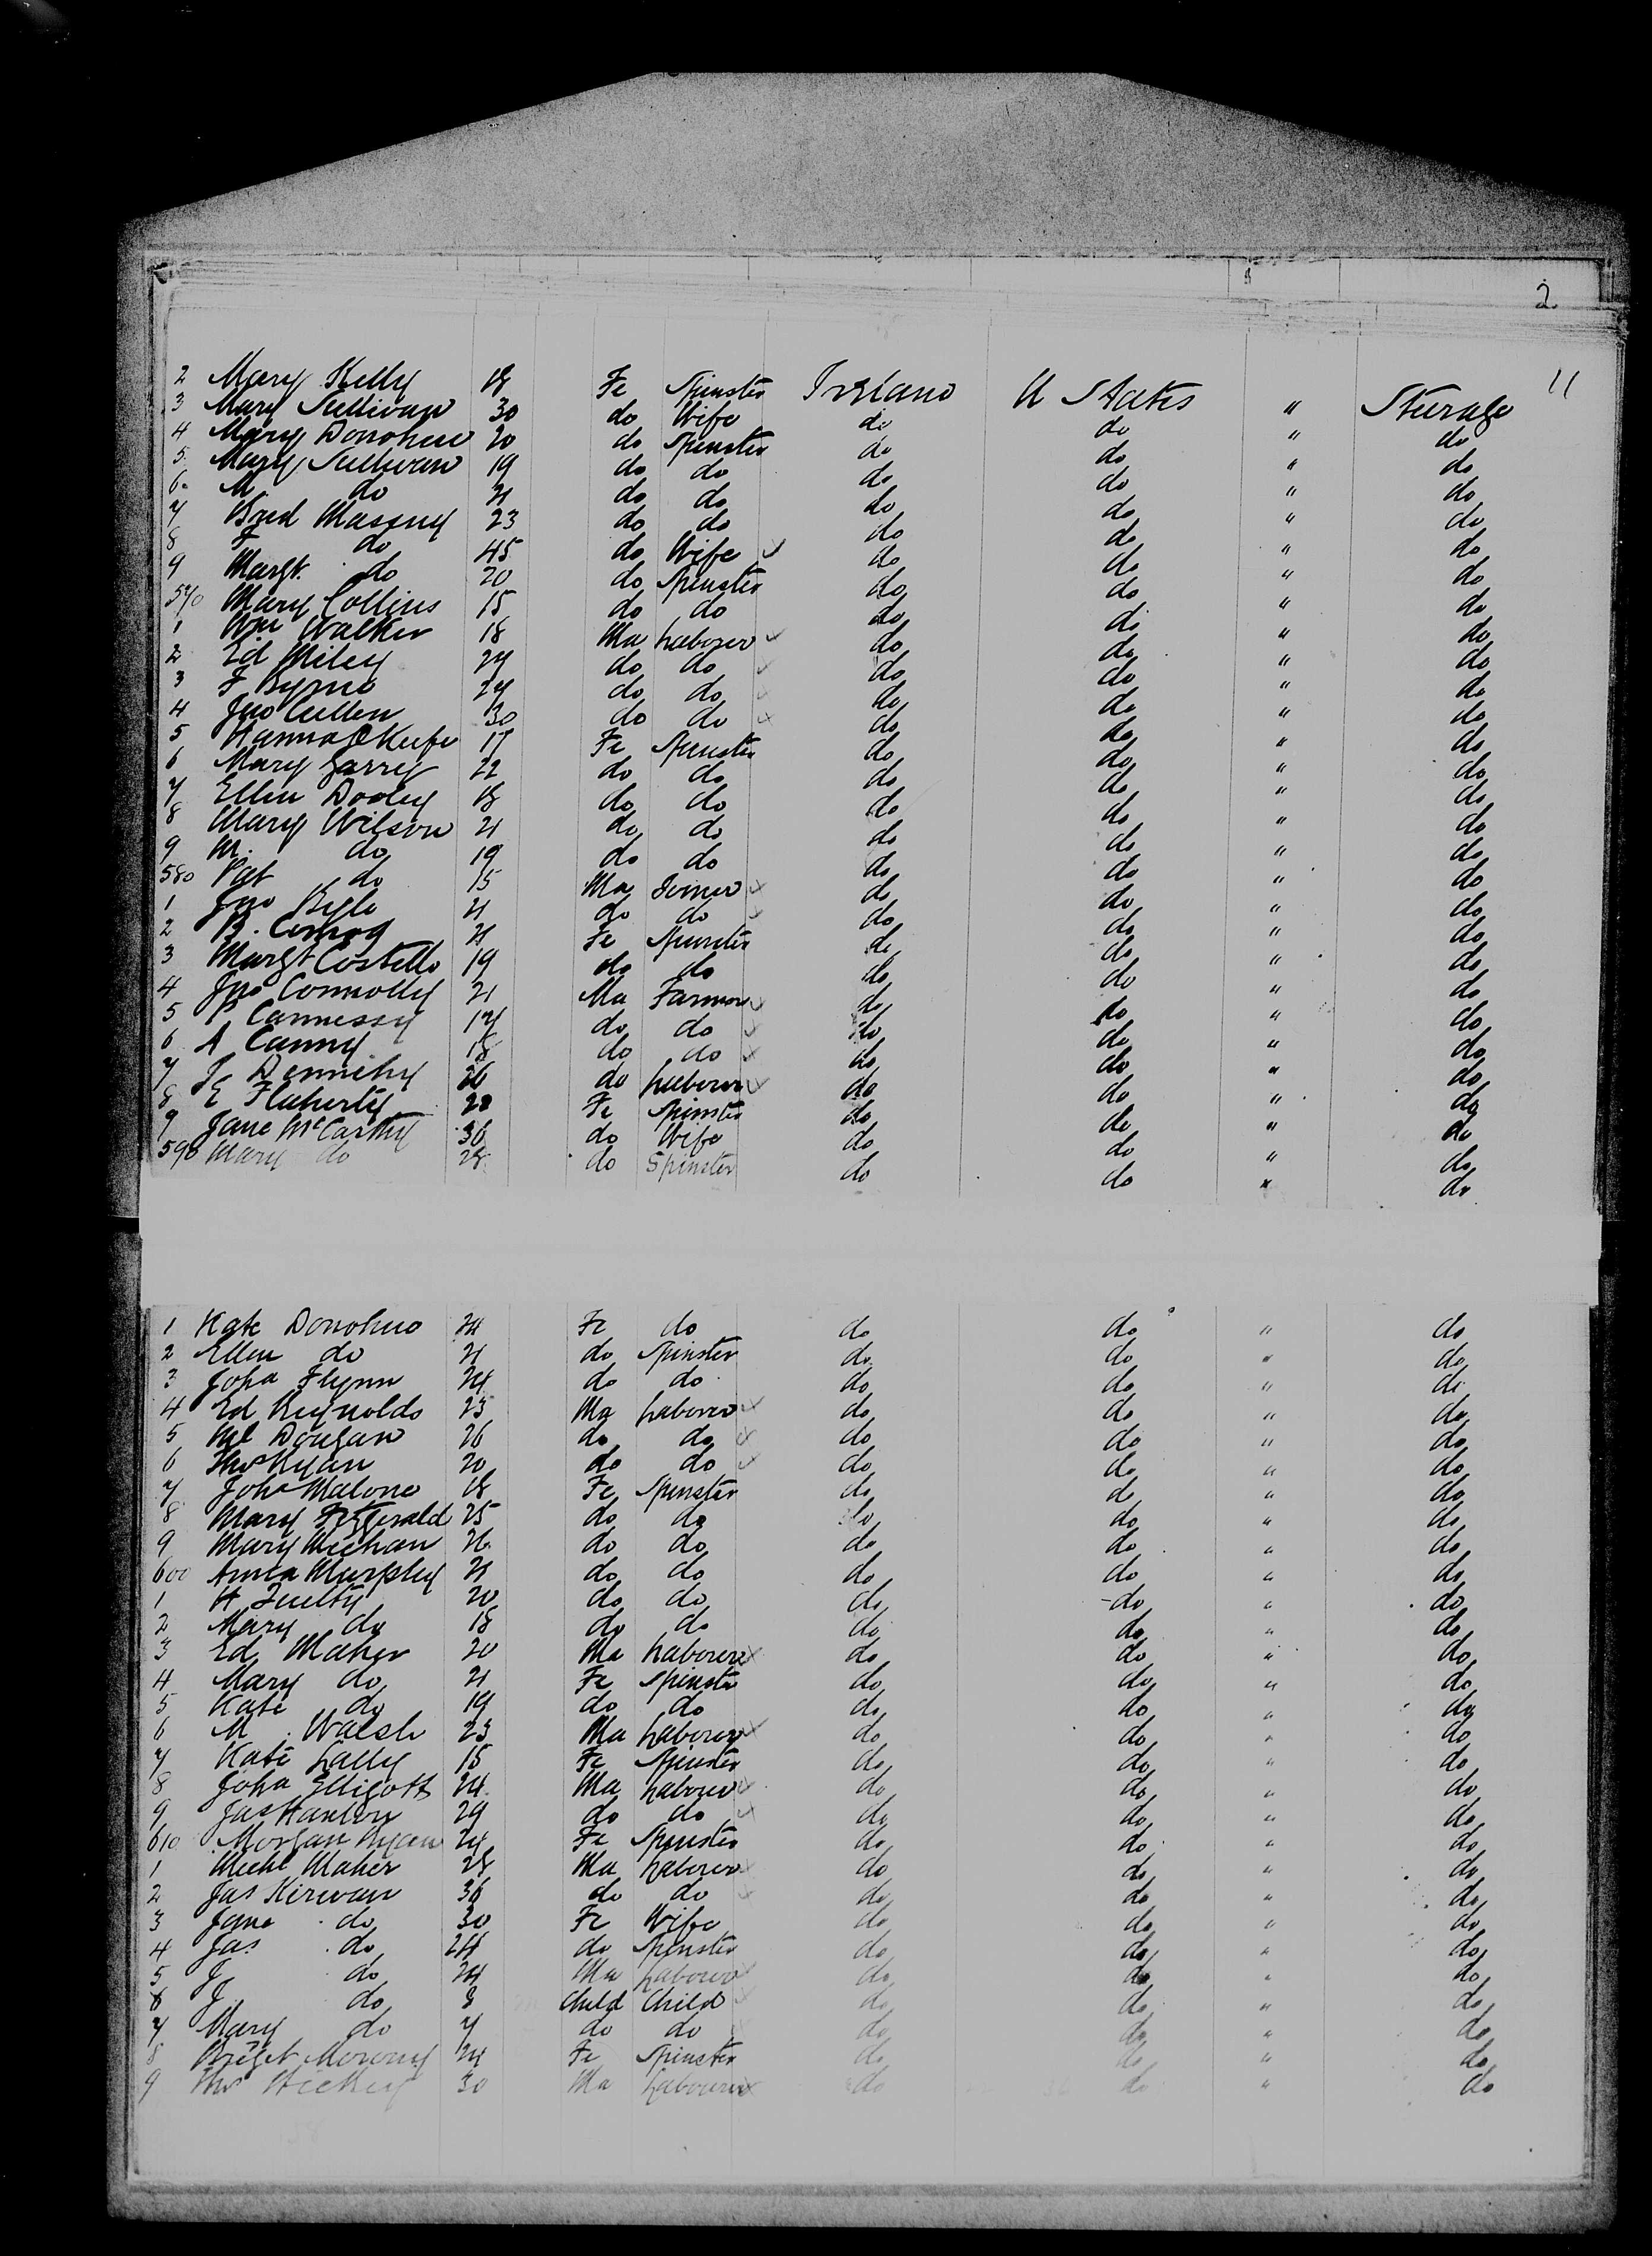 2
11
2 Mary Kelly 18 Fe Spinster Ireland U States " Steerage
3 Mary Sullivan 30 do Wife do do " do
4 Mary Donohue 20 do Spinster do do " do
5 Mary Sullivan 19 do do do do " do
6 M do 21 do do do do " do
7 Brid Massey 23 do do do do " do
8 F do 45 do Wife do do " do
9 Margt. do 20 do Spinster do do " do
570 Mary Collins 15 do do do do " do
1 Wm Walker 18 Ma Laborer do do " do
2 Ed Miley 24 do do do do " do
3 F Byrne 24 do do do do " do
4 Jno Cullen 30 do do do do " do
5 Hanna OKeefe 17 Fe Spinster do do " do
6 Mary Garry 22 do do do do " do
7 Ellen Dooley 18 do do do do " do
8 Mary Wilson 21 do do do do " do
9 M. do 19 do do do do " do
580 Pat do 15 Ma Joiner do do " do
1 Jno 21 do do do do " do
2 B. 21 Fe Spinster do do " do
3 Margt Costello 19 do do do do " do
4 Jno Connolly 21 Ma Farmer do do " do
5 P Cannessy 17 do do do do " do
6 A Canny 18 do do do do " do
7 Dennehy 26 do Laborer do do " do
8 E Flaherty 20 Fe Spinster do do " do
9 Jane McCarthy 36 do Wife do do " do
590 Mary do 28 do Spinster do do " do
1 Kate Donohue 24 Fe do do do " do
2 Ellen do 21 do Spinster do do " do
3 Joha Flynn 24 do do do do " do
4 Ed Reynolds 25 Ma Laborer do do " do
5 Ml Dougan 26 do do do do " do
6 Thos Ryan 20 do do do do " do
7 Joha Malone 18 Fe Spinster do do " do
8 Mary Fitzgerald 25 do do do do " do
9 Mary Meehan 26 do do do do " do
600 Annea Murphy 21 do do do do " do
1 H Quilty 20 do do do do " do
2 Mary do 18 do do do do " do
3 Ed Maher 20 Ma Laborer do do " do
4 Mary do 21 Fe Spinster do do " do
5 Kate do 19 do do do do " do
6 M Walsh 23 Ma Laborer do do " do
7 Kate Lally 15 Fe Spinster do do " do
8 Joha Elligott 24 Ma Laborer do do " do
9 Jas Hanlon 29 do do do do " do
610 Morgan Ryan 24 Fe Spinster do do " do
1 Michl Maher 28 Ma Laborer do do " do
2 Jas Kirwan 36 do do do do " do
3 Jane do 30 Fe Wife do do " do
4 Jas do 24 do Spinster do do " do
5 J do 24 Ma Laborer do do " do
6 J do 8 Child Child do do " do
7 Mary do 7 do do do do " do
8 Briget Moroney 24 Fe Spinster do do " do
9 Thos Hickey 30 Ma Labourer do do " do